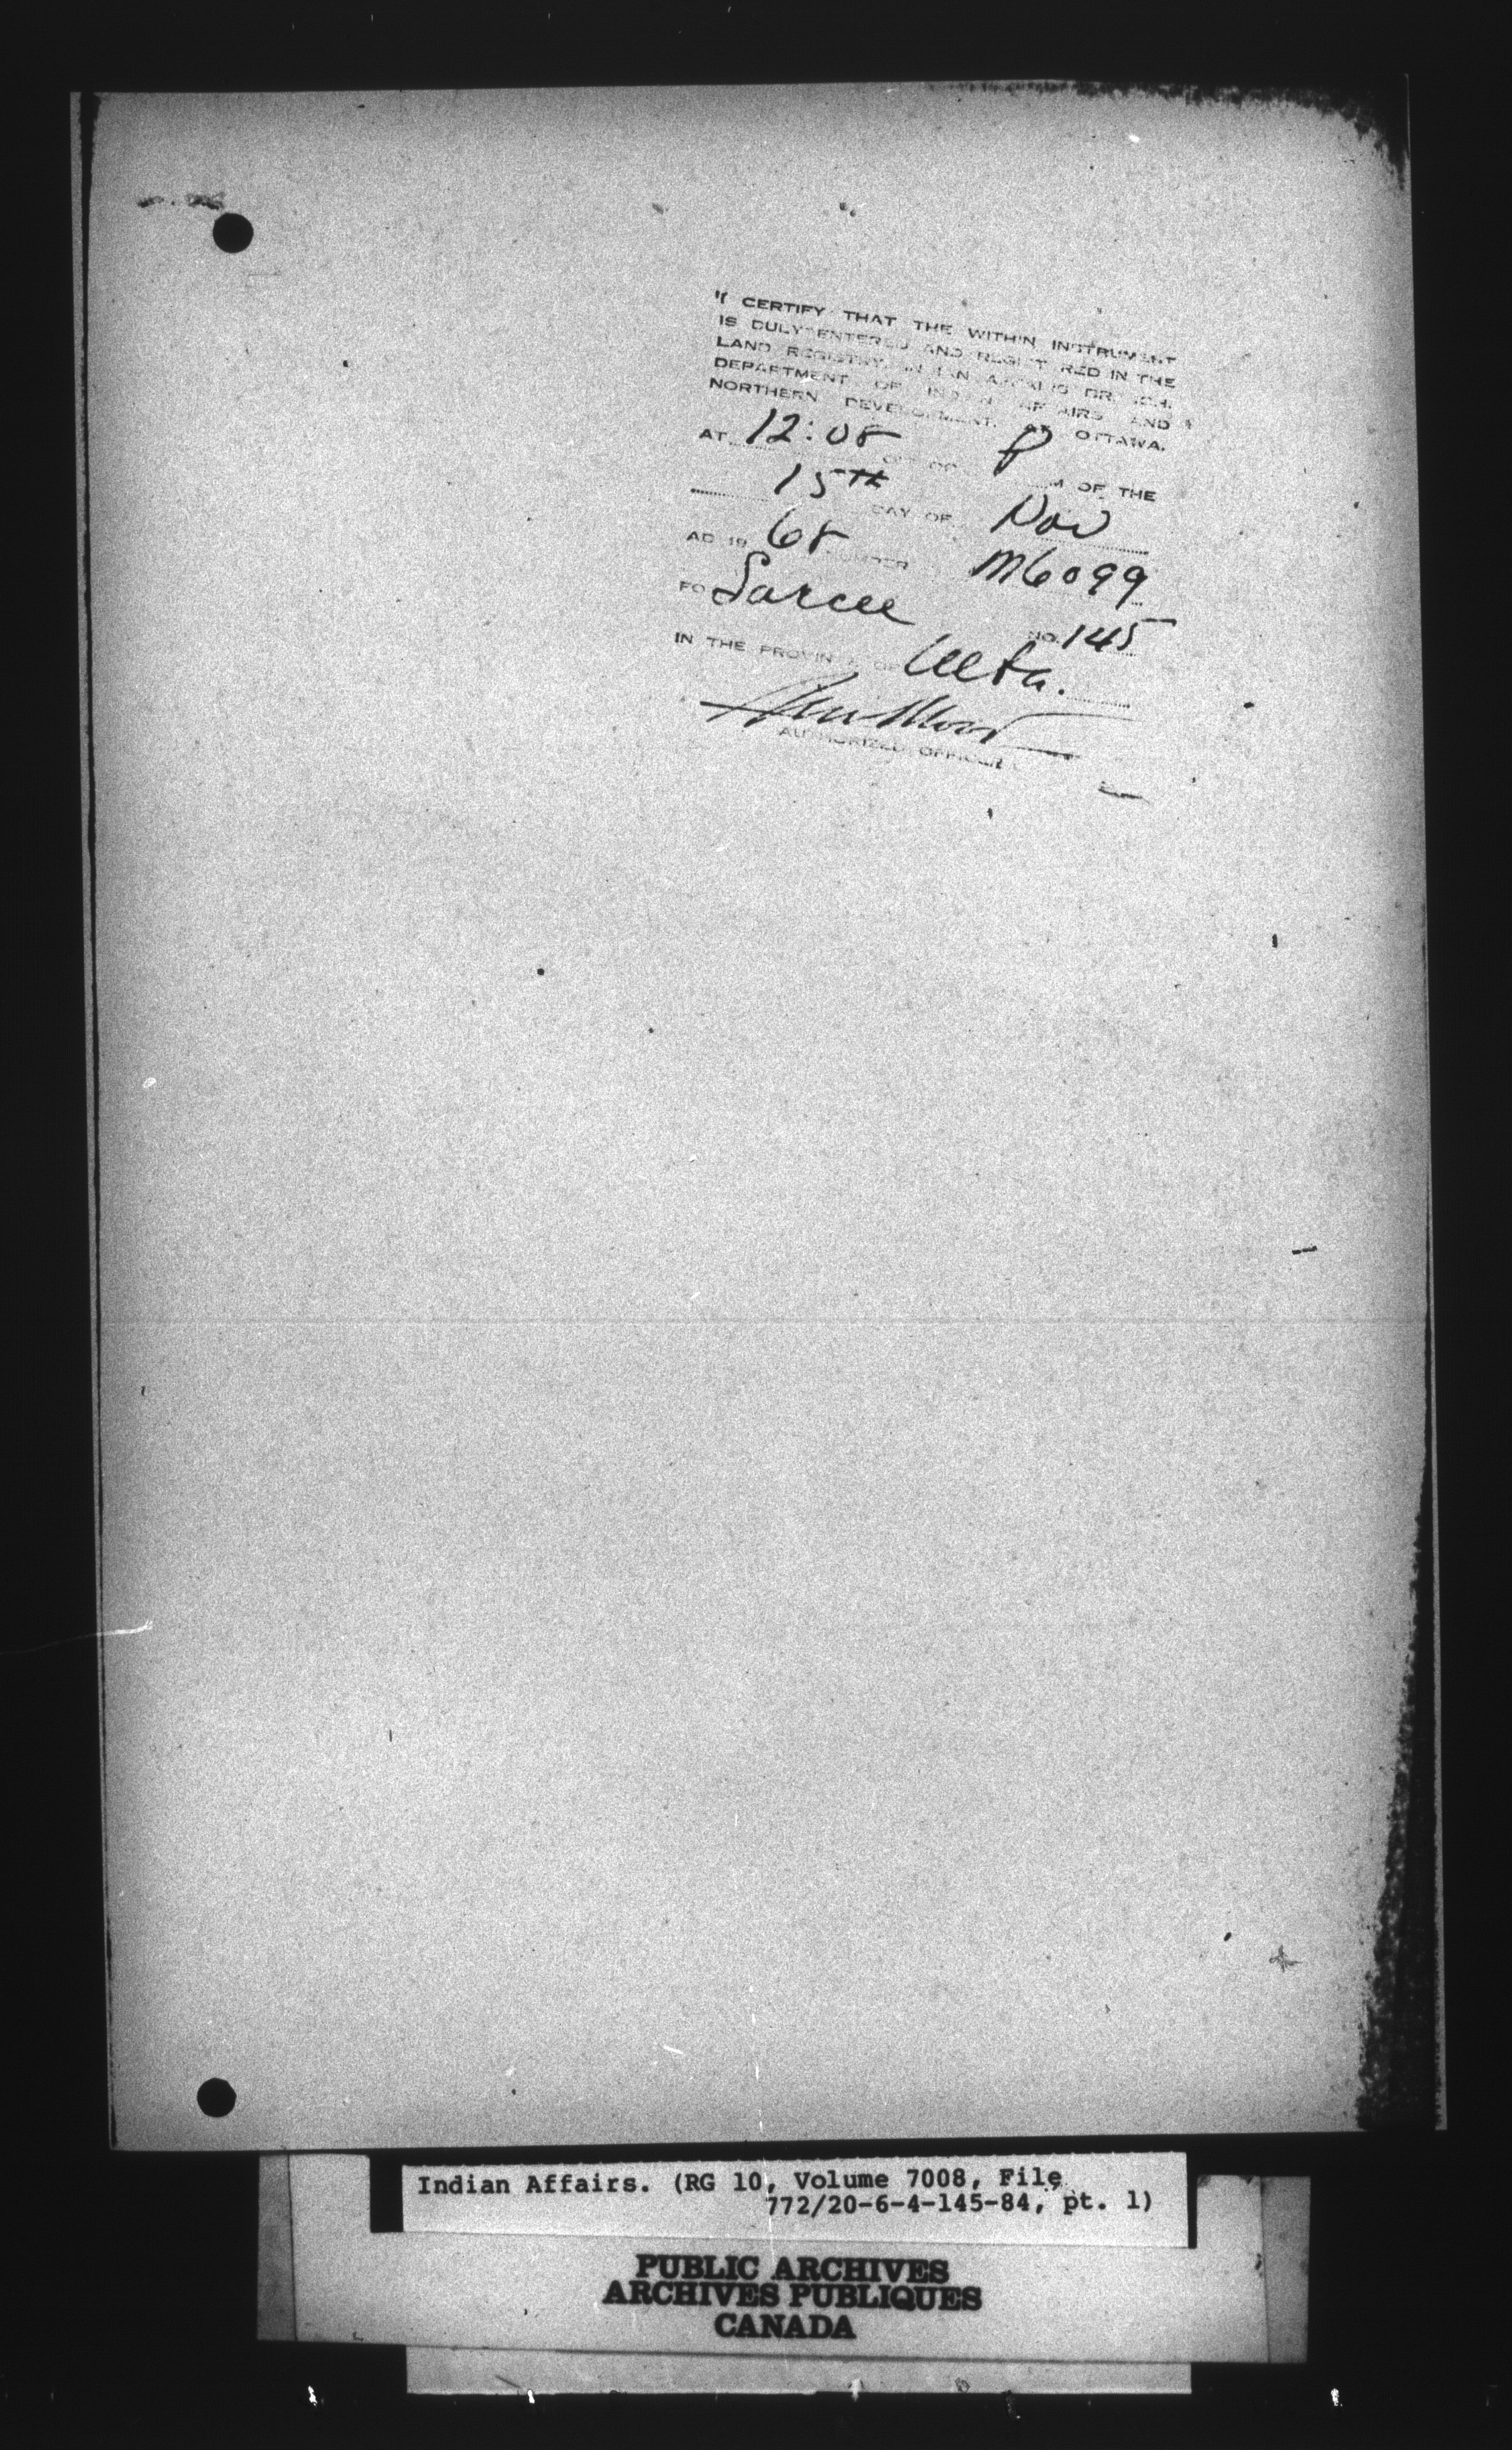 "I CERTIFY THAT THE WITHIN INSTRUMENT
IS DULY ENTERED AND REGISTERED IN THE
LAND REGISTRY, INDIAN AFFAIRS BRANCH,
DEPARTMENT OF INDIAN AFFAIRS AND
NORTHERN DEVELOPMENT, AT OTTAWA.
AT 12:08 O'CLOCK P M OF THE
15TH DAY OF Nov
AD 19 68 NUMBER M6099
FOR Sarcee NO. 145
IN THE PROVINCE OF Alta.
AUTHORIZED OFFICER
Indian Affairs. (RG 10, Volume 7008, File
772/20-6-4-145-84, pt. 1)
PUBLIC ARCHIVES
ARCHIVES PUBLIQUES
CANADA